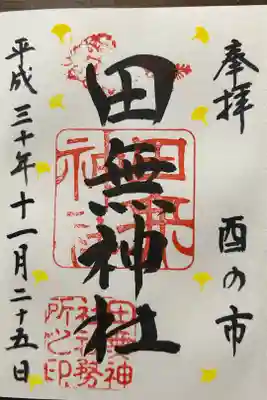 奉拝
酉の市
田無神社
田無神社
平成三十年十一月二十五日
田無神
社社務
所之印